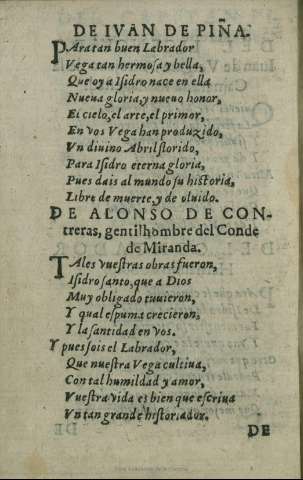 DE IVAN DE PIÑA.
PAra tan buen Labrador
Vega tan hermosa y bella,
Que oy a Isidro nace en ella
Nueua gloria, y nueuo honor,
El cielo, el arte, el primor,
En vos Vega han produzido,
Vn diuino Abril florido,
Para Isidro eterna gloria,
Pues dais al mundo su historia,
Libre de muerte, y de oluido.
DE ALONSO DE CON-
treras, gentilhombre del Conde
de Miranda.
TAles vuestras obras fueron,
Isidro santo, que a Dios
Muy obligado tuuieron,
Y qual espuma crecieron,
Y la santidad en vos.
Y pues sois el Labrador,
Que nuestra Vega cultiua,
Con tal humildad y amor,
Vuestra vida es bien que escriua
Vn tan grande historiador.
DE